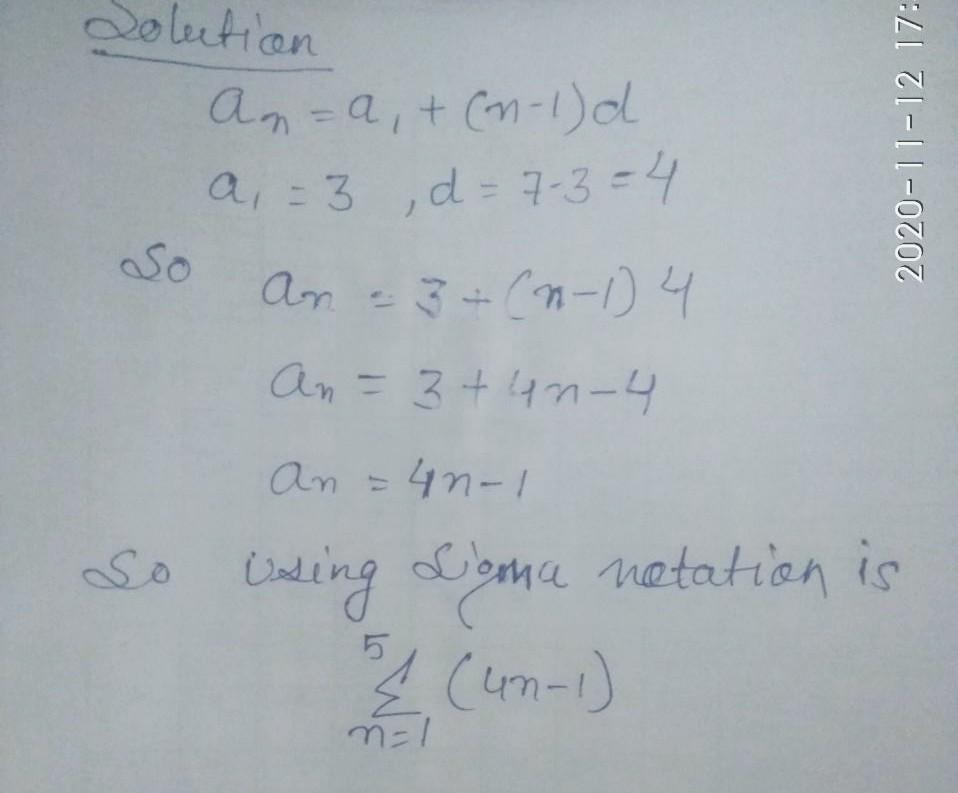 Solution
aₙ = a₁ + (n-1)d
a₁ = 3 , d = 7-3 = 4
So aₙ = 3 + (n-1) 4
aₙ = 3 + 4n - 4
aₙ = 4n - 1
So using Sigma notation is
5
Σ (4n-1)
n=1
2020-11-12 17: